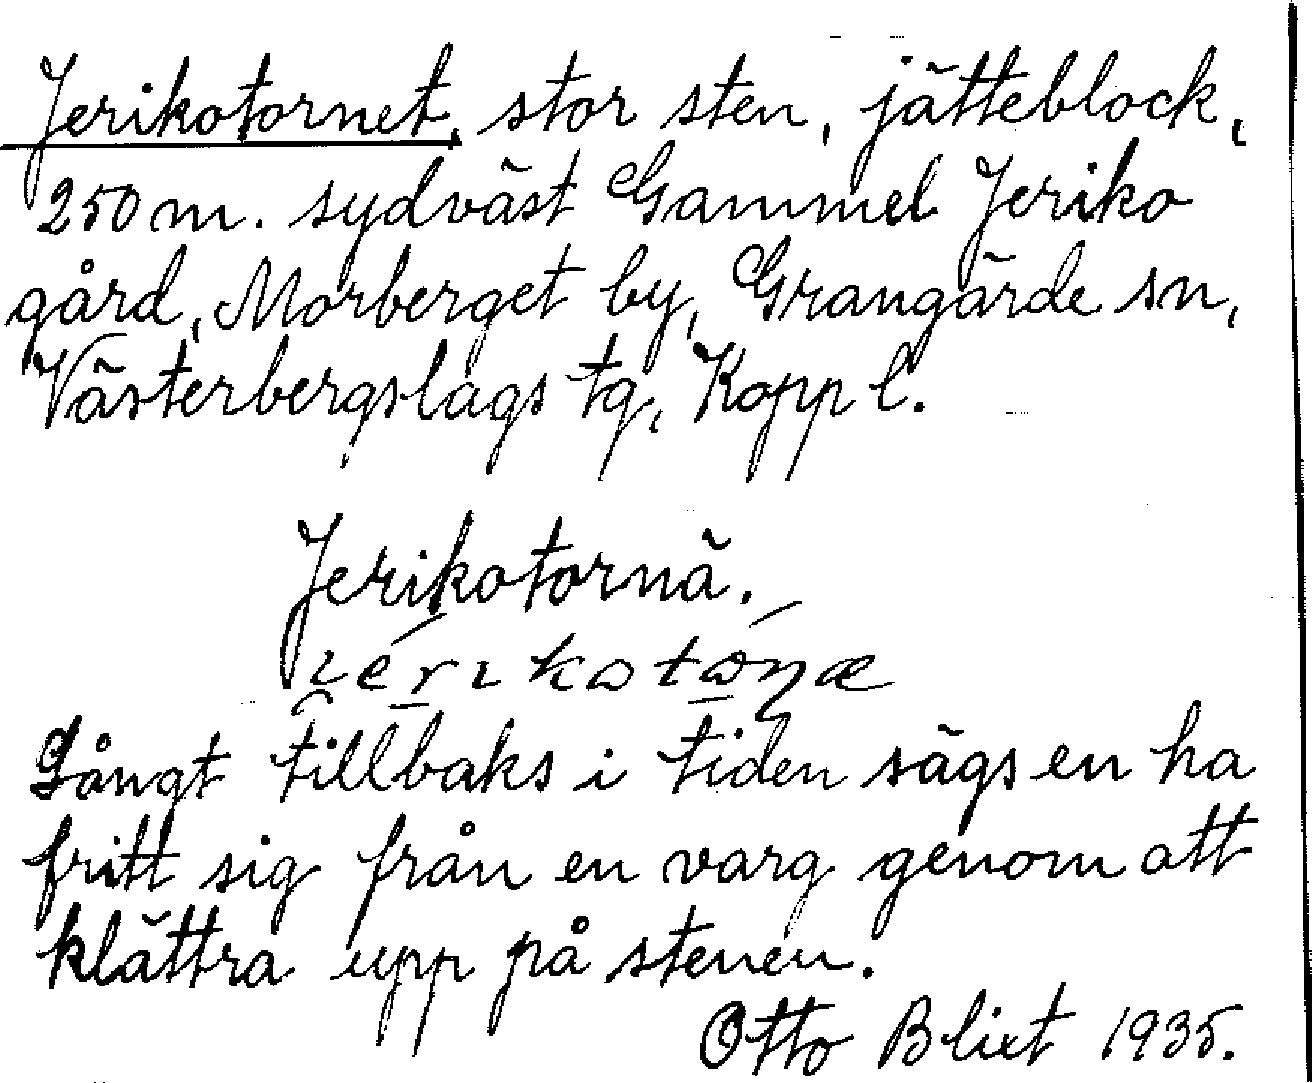 Jerikotornet, stor sten, jätteblock,
250 m. sydväst Gammel Jeriko
gård, Morberget by, Grangärde sn,
Västerbergslags tg, Kopp l.
Jerikotornä.
Långt tillbaks i tiden sägs en ha
fritt sig från en varg genom att
klättra upp på stenen.
Otto Blixt 1935.